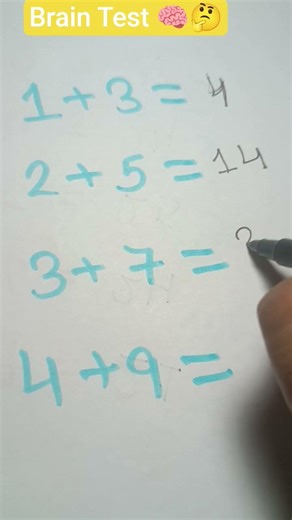 Brain Test 🧠🤔
1+3=4
2+5=14
3+7=
4+9=